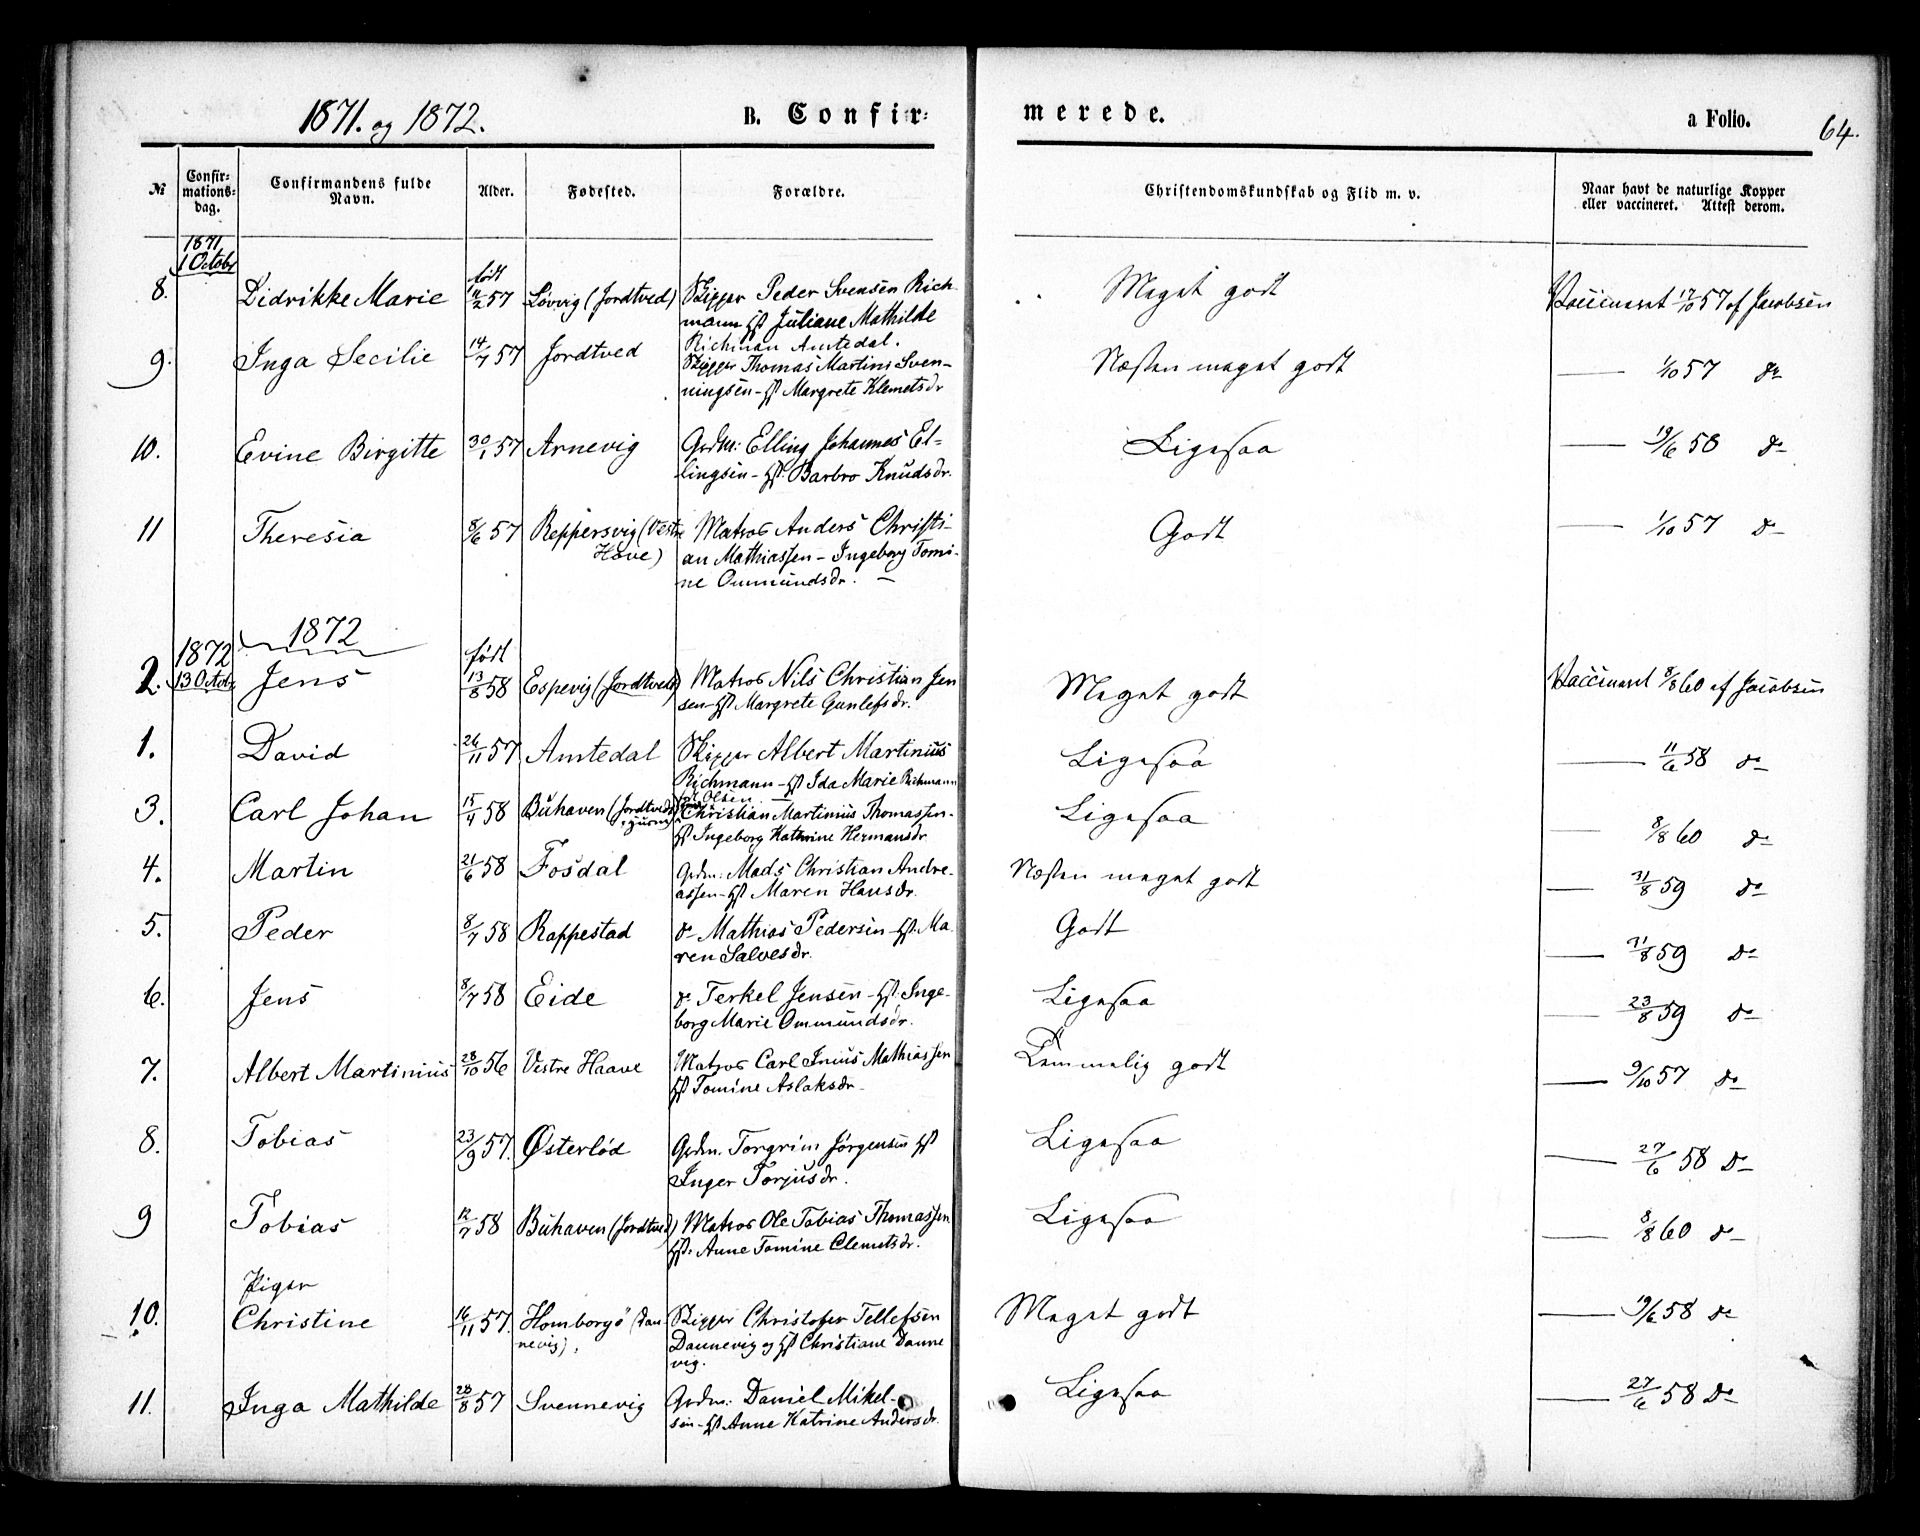 1871. og 1872.
B. Confir-
merede.
a Folio.
64.
№
Confir-
mations-
dag.
Confirmandens fulde
Navn.
Alder.
Fødested.
Forældre.
Christendomskundskab og Flid m. v.
Naar havt de naturlige Kopper
eller vaccineret. Attest derom.
1871
1 Octobr
født
8. Didrikke Marie 57 Løvvig (Jordtved) Skipper Peder Svensen Rich-
mann Hst Juliane Mathilde
Richman Amtedal.
Meget godt
Vaccineret 17/10 57 af Jacobsen
9. Inga Secilie 14/7 57 Jordtved Skipper Thomas Martin Sven-
ningsen - Hst Margrete Klemetsdr
Næsten meget godt
1/10 57 do
10. Evine Birgitte 30/1 57 Arnevig Grdm: Elling Johannes El-
lingsen - Hst. Barbro Knudsdr.
Ligesaa
19/6 58 do
11 Theresia 8/6 57 Reppersvig (Vestre
Hove)
Matros Anders Christi-
an Mathiassen - Ingeborg Tomi-
ne Ommundsdr. -
Godt
1/10 57 do
1872
1872
13 Octob
født
2. Jens 13/8 58 Espevig (Jordtved) Matros Nils Christian Jen
sen - Hst Margrete Gunlefsdr.
Meget godt
Vaccineret 8/8 60 af Jacobsen
1. David 26/11 57 Amtedal Skipper Albert Martinius
Richmann - Hst Ida Marie Richmann
Olsen
Ligesaa
11/6 58 do
3. Carl Johan 15/4 58 Buhaven (Jordtveds
Christian Martinius Thomassen -
Hst Ingeborg Kathrine Hermansdr
Ligesaa
8/8 60 do
4. Martin 21/6 58 Fosdal Grdm: Mads Christian Andre-
assen - Hst Maren Hansdr.
Næsten meget godt
31/8 59 do
5. Peder 8/7 58 Rappestad do Mathias Pedersen - Hst. Ma-
ren Salvesdr.
Godt
31/8 59 do
6. Jens 8/7 58 Eide do Terkel Jensen - Hst. Inge-
borg Marie Ommundsdr.
Ligesaa
23/8 59 do
7. Albert Martinius 28/10 56 Vestre Haave Matros Carl Inius Mathiassen
Hst Tomine Aslaksdr.
Temmelig godt
9/10 57 do
8. Tobias 23/9 57. Østerlød Grdm. Torgrim Jørgensen Hst
Inger Torjusdr.
Ligesaa
27/6 58 do
9 Tobias 12/7 58 Buhaven (Jordtved) Matros Ole Tobias Thomassen
Hst. Anne Tomine Clemetsdr.
Ligesaa
8/8 60 do
Piger
10. Christine 16/11 57. Homborgö (Dan
nevig),
Skipper Christofer Tellefsen
Dannevig og Hst Christiane Danne
vig.
Meget godt
19/6 58 do
11. Inga Mathilde 28/8 57 Svennevig Grdm: Daniel Mikel-
sen - Hst Anne Katrine Andersdr.
Ligesaa
27/6 58 do